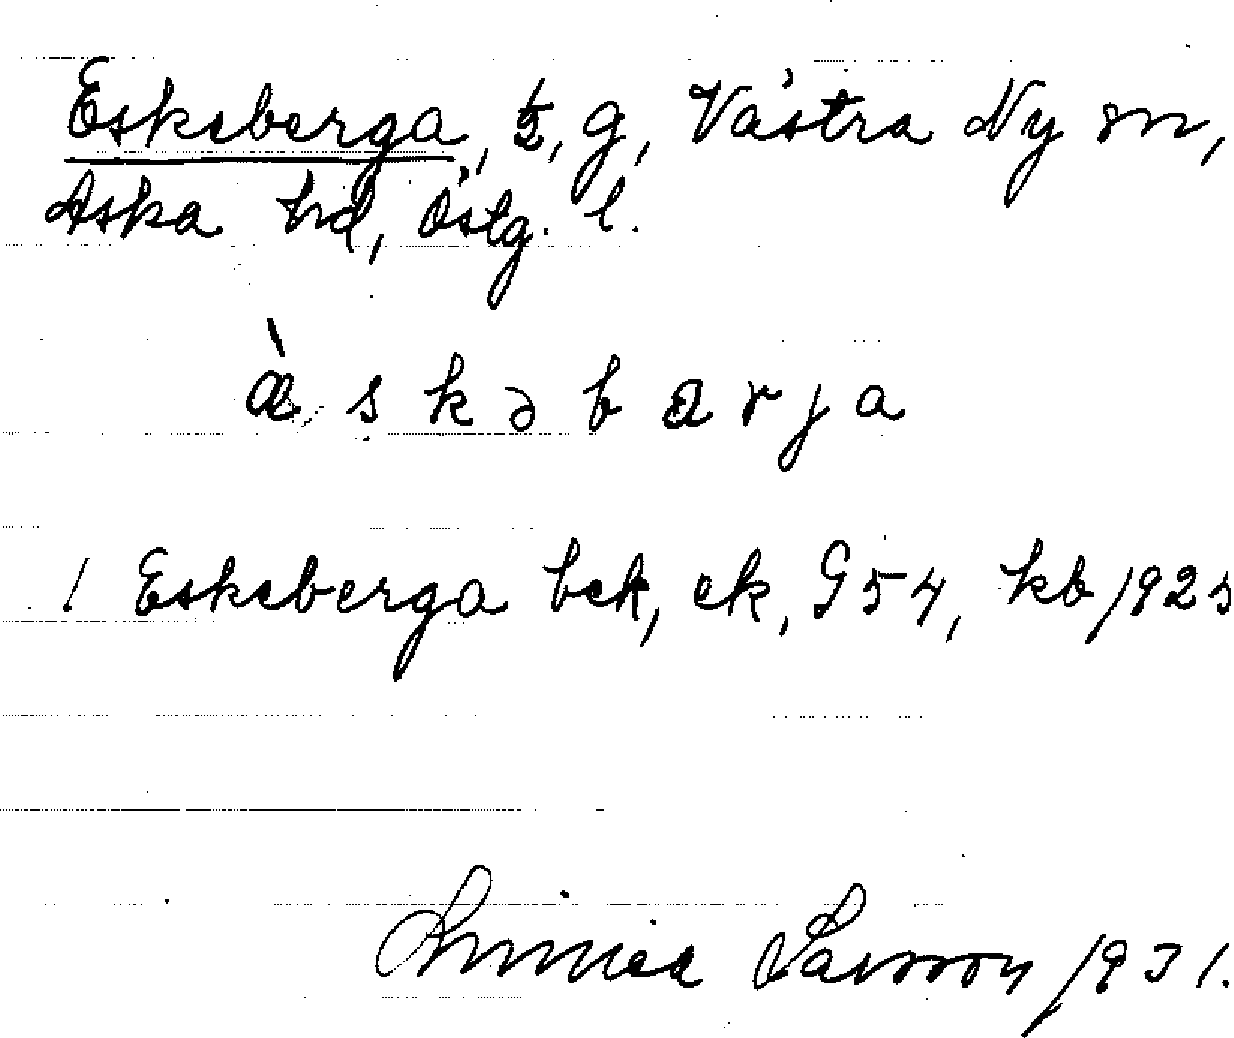 Eskeberga, ½, g, Västra Ny sn,
Aska hd, Östg. l.
æ̀ s k ə b a r j a
1 Eskeberga bek, ek, G 54, kb 1925
Linnéa Larsson 1931.